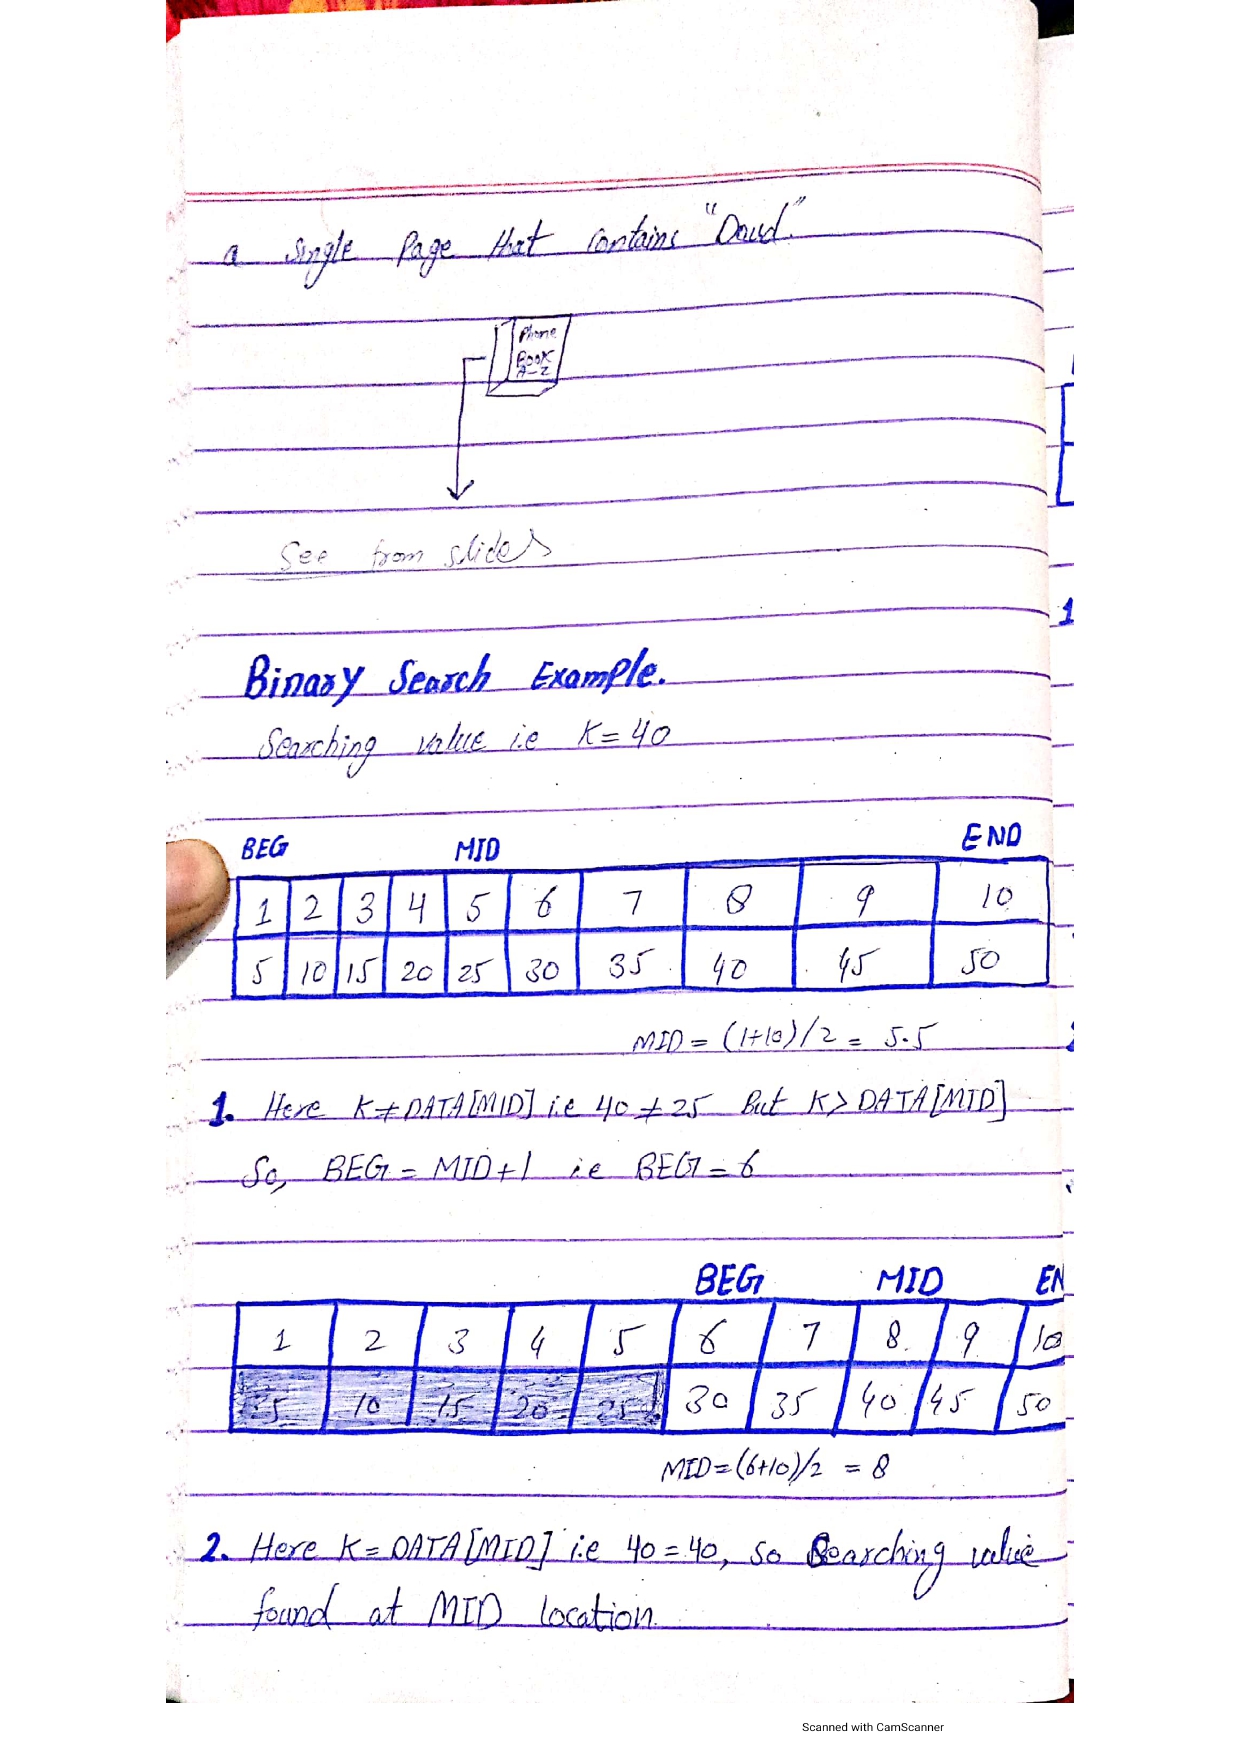 a single Page that contains "Daud."
Phone
BOOK
A-Z
See from slides
Binary Search Example.
Searching value i.e K=40
BEG MID END
1 2 3 4 5 6 7 8 9 10
5 10 15 20 25 30 35 40 45 50
MID = (1+10)/2 = 5.5
1. Here K≠DATA[MID] i.e 40≠25 But K>DATA[MID]
So, BEG = MID+1 i.e BEG=6
BEG MID EN
1 2 3 4 5 6 7 8 9 10
5 10 15 20 25 30 35 40 45 50
MID=(6+10)/2 = 8
2. Here K= DATA[MID] i.e 40=40, so Searching value
found at MID location.
1
Scanned with CamScanner